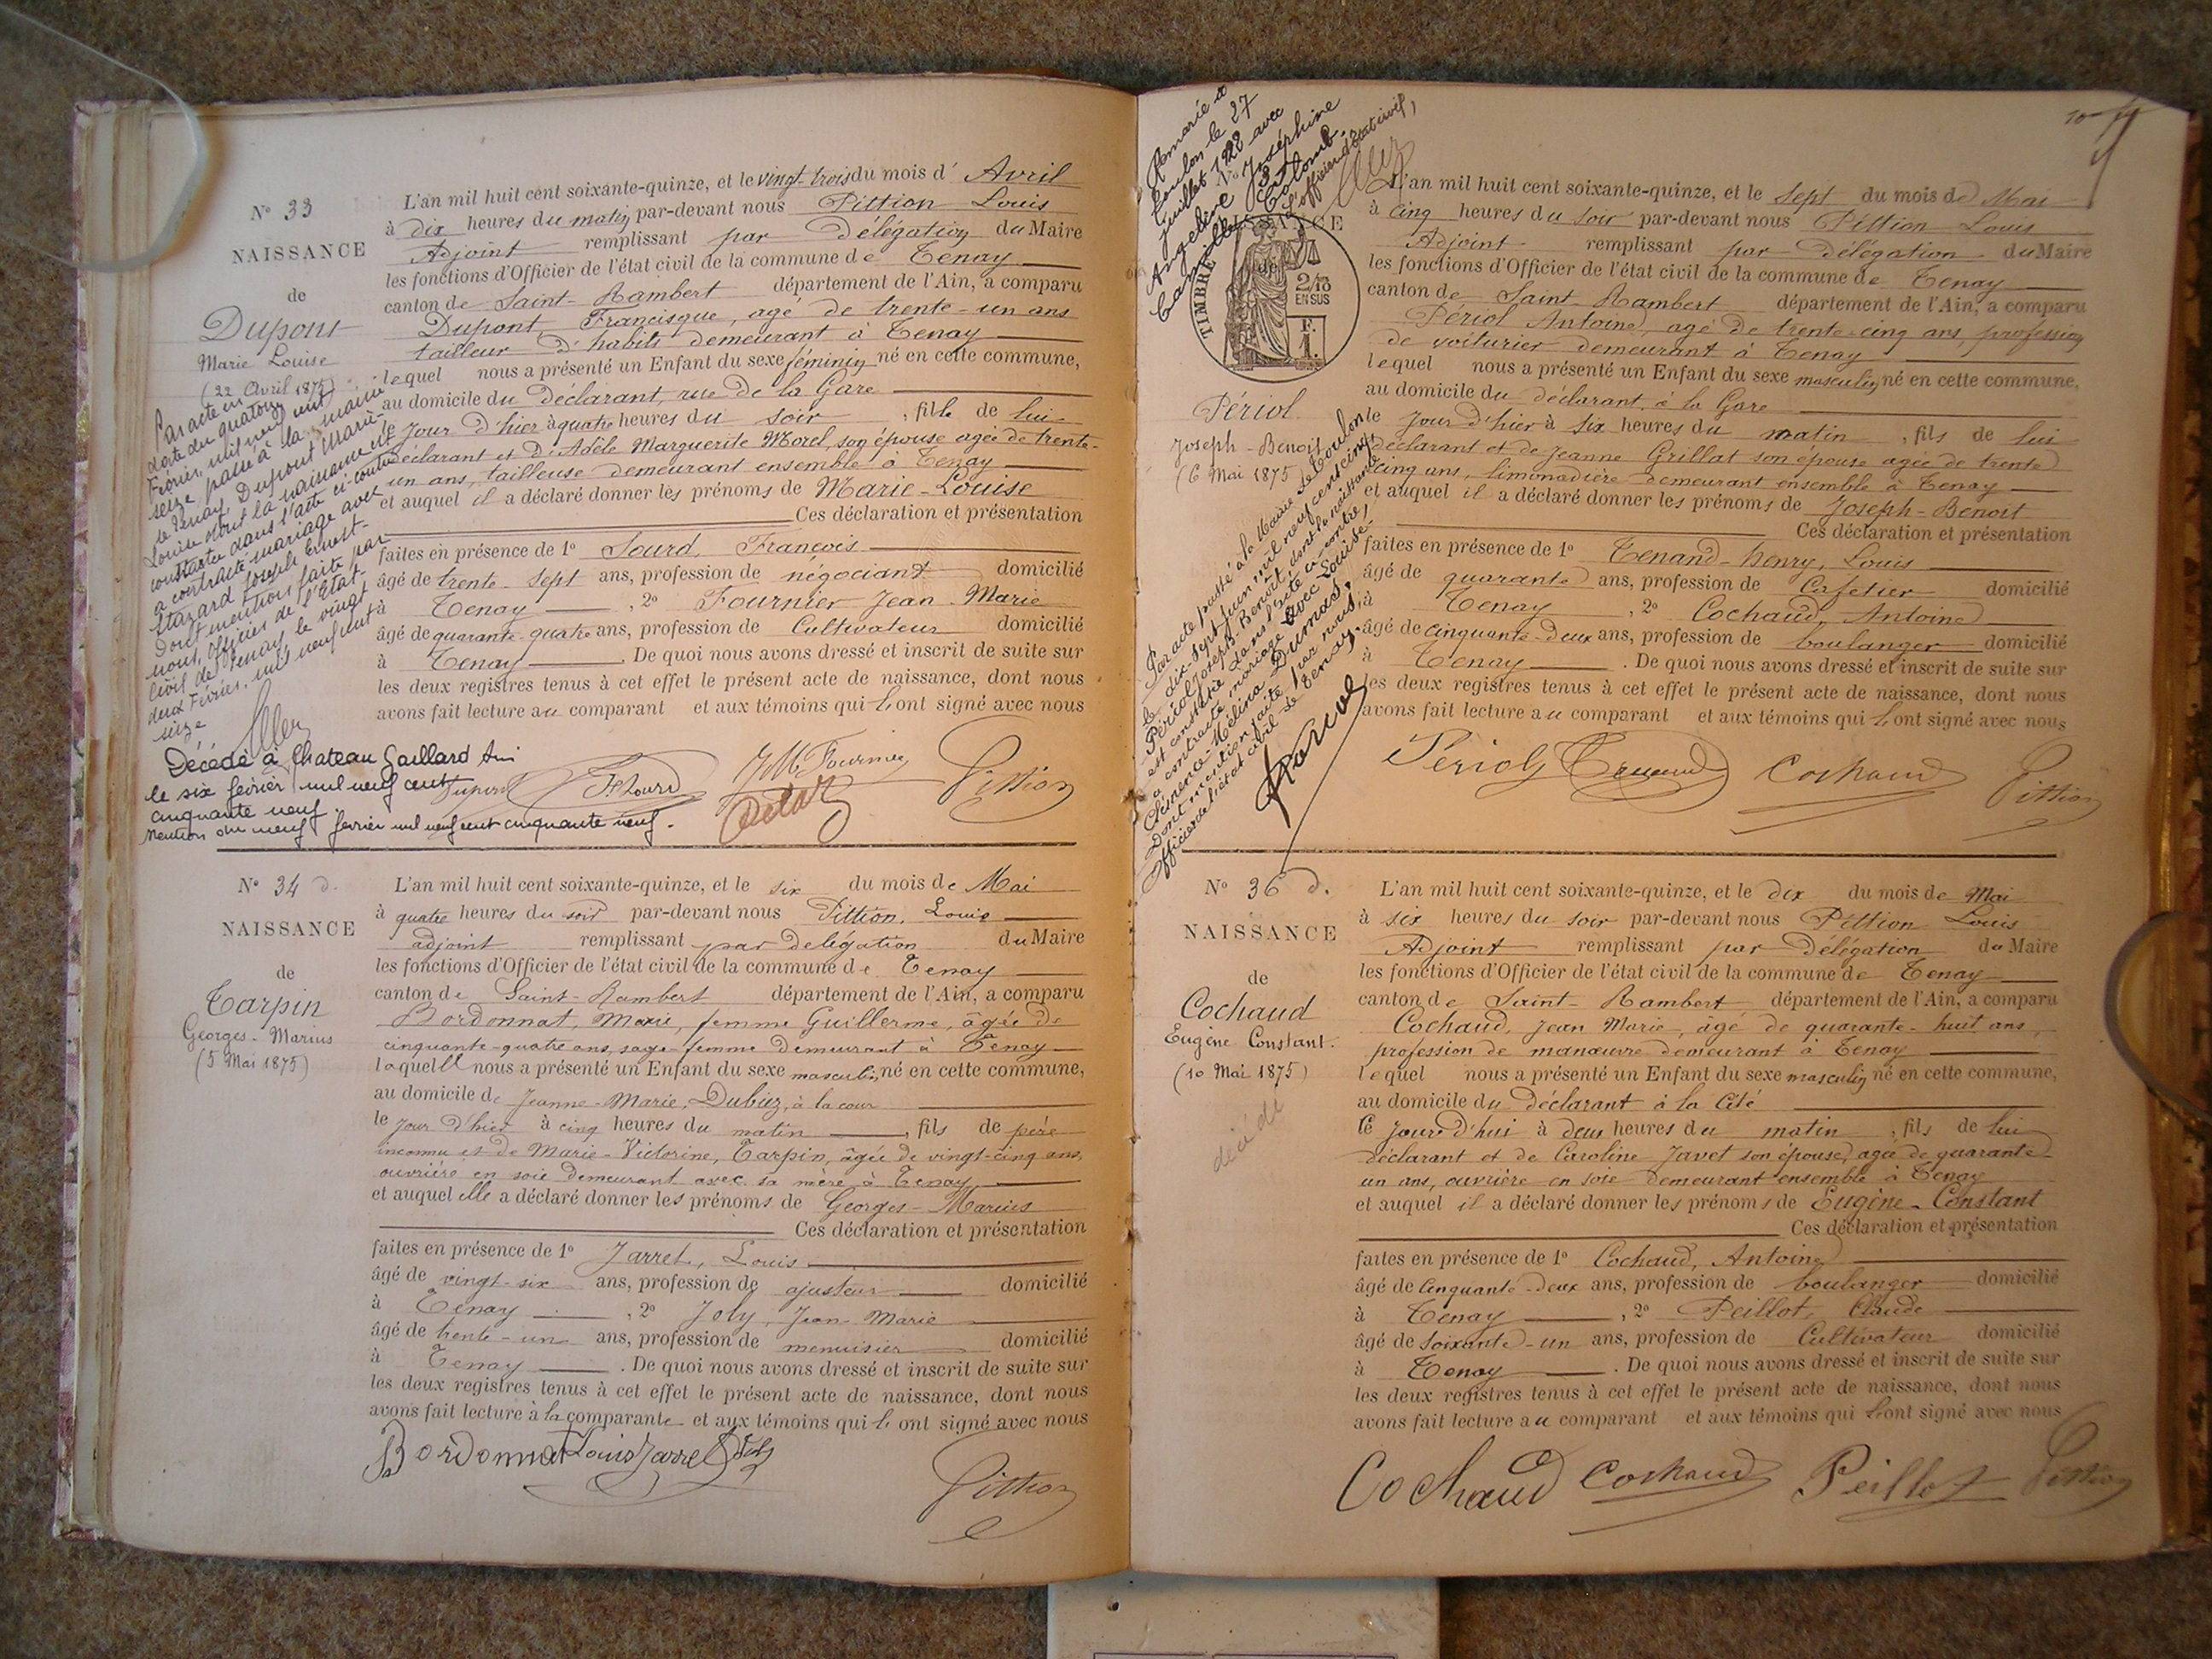 N° 33
NAISSANCE
de
Dupont
Marie Louise
(22 Avril 1875)
L'an mil huit cent soixante-quinze, et le vingt-trois du mois d' Avril
à dix heures du matin par-devant nous Pittion Louis
Adjoint remplissant par Délégation du Maire
les fonctions d'Officier de l'état civil de la commune de Tenay
canton de Saint-Rambert département de l'Ain, a comparu
Dupont, Francisque, agé de trente-un ans
tailleur d'habits demeurant à Tenay
lequel nous a présenté un Enfant du sexe féminin né en cette commune,
au domicile du Déclarant, rue de la Gare
le jour d'hier à quatre heures du soir, fille de lui
déclarant et d'Adèle Marguerite Morel, son épouse agée de trente-
un ans, tailleuse demeurant ensemble à Tenay
et auquel il a déclaré donner les prénoms de Marie-Louise
Ces déclaration et présentation
faites en présence de 1° Sourd, François
âgé de trente-sept ans, profession de négociant domicilié
à Tenay, 2° Fournier Jean-Marie
âgé de quarante-quatre ans, profession de Cultivateur domicilié
à Tenay. De quoi nous avons dressé et inscrit de suite sur
les deux registres tenus à cet effet le présent acte de naissance, dont nous
avons fait lecture au comparant et aux témoins qui l'ont signé avec nous
Par acte en
date du quatorze
Février, mil neuf cent
seize, passé à la mairie
de Tenay, Dupont Marie-
Louise dont la naissance est
constatée dans l'acte ci-contre
a contracté mariage avec
Joseph Ernest.
Dont mention faite par
nous, officier de l'Etat-
civil de Tenay, le vingt
deux Février, mil neuf cent
seize
Décédé à Chateau Gaillard Ain
le six février mil neuf cent
cinquante neuf
Mention du neuf février mil neuf cent cinquante neuf.
Dupont F. Sourd JM Fournier Pittion
N° 34 d.
NAISSANCE
de
Tarpin
Georges-Marius
(5 Mai 1875)
L'an mil huit cent soixante-quinze, et le six du mois de Mai
à quatre heures du soir par-devant nous Pittion, Louis
adjoint remplissant par délégation du Maire
les fonctions d'Officier de l'état civil de la commune de Tenay
canton de Saint-Rambert département de l'Ain, a comparu
Bordonnat, Marie, femme Guillerme, âgée de
cinquante-quatre ans, sage-femme demeurant à Tenay
laquelle nous a présenté un Enfant du sexe masculin, né en cette commune,
au domicile de Jeanne-Marie, Dubiez, à la cour
le jour d'hier à cinq heures du matin, fils de père
inconnu et de Marie-Victorine, Tarpin, âgée de vingt-cinq ans,
ouvrière en soie demeurant avec sa mère à Tenay
et auquel elle a déclaré donner les prénoms de Georges-Marius
Ces déclaration et présentation
faites en présence de 1° Jarret, Louis
âgé de vingt-six ans, profession de ajusteur domicilié
à Tenay, 2° Joly, Jean-Marie
âgé de trente-un ans, profession de menuisier domicilié
à Tenay. De quoi nous avons dressé et inscrit de suite sur
les deux registres tenus à cet effet le présent acte de naissance, dont nous
avons fait lecture à la comparante et aux témoins qui l'ont signé avec nous
Bordonnat Louis Jarret Joly
Pittion
10
Remarié à
Toulon le 27
juillet 1928 avec
Angeline Joséphine
Colomb.
L'officier d'état civil,
NAISSANCE
de
TIMBRE
2/10
EN SUS
F.
1.
Périol
Joseph-Benoit
(6 Mai 1875)
L'an mil huit cent soixante-quinze, et le sept du mois de Mai
à cinq heures du soir par-devant nous Pittion Louis
Adjoint remplissant par Délégation du Maire
les fonctions d'Officier de l'état civil de la commune de Tenay
canton de Saint-Rambert département de l'Ain, a comparu
Périol Antoine, agé de trente-cinq ans, profession
de voiturier demeurant à Tenay
lequel nous a présenté un Enfant du sexe masculin, né en cette commune,
au domicile du déclarant, à la Gare
le Jour d'hier à six heures du matin, fils de lui
déclarant et de Jeanne Grillat son épouse agée de trente
cinq ans, limonadière demeurant ensemble à Tenay
et auquel il a déclaré donner les prénoms de Joseph-Benoit
Ces déclaration et présentation
faites en présence de 1° Tenand-henry, Louis
âgé de quarante ans, profession de Cafetier domicilié
à Tenay, 2° Cochaud, Antoine
âgé de cinquante-deux ans, profession de boulanger domicilié
à Tenay. De quoi nous avons dressé et inscrit de suite sur
les deux registres tenus à cet effet le présent acte de naissance, dont nous
avons fait lecture au comparant et aux témoins qui l'ont signé avec nous
Par acte passé à la Mairie de Toulon
le dix-sept juin mil neuf cent cinq,
Périol Joseph-Benoît, dont la naissance
est constatée dans l'acte ci-contre,
a contracté mariage avec Louise-
Clémence-Mélina Dumas.
Dont mention faite par nous,
Officier de l'état civil de Tenay.
Périol Tenand Cochaud Pittion
N° 36 d.
NAISSANCE
de
Cochaud
Eugène Constant.
(10 Mai 1875)
décédé
L'an mil huit cent soixante-quinze, et le dix du mois de Mai
à six heures du soir par-devant nous Pittion Louis
Adjoint remplissant par Délégation du Maire
les fonctions d'Officier de l'état civil de la commune de Tenay
canton de Saint-Rambert département de l'Ain, a comparu
Cochaud, Jean Marie, âgé de quarante-huit ans,
profession de manœuvre demeurant à Tenay
lequel nous a présenté un Enfant du sexe masculin né en cette commune,
au domicile du déclarant à la Cité
le jourd'hui à deux heures du matin, fils de lui
déclarant et de Caroline Javet son épouse, agée de quarante
un ans, ouvrière en soie demeurant ensemble à Tenay
et auquel il a déclaré donner les prénoms de Eugène-Constant
Ces déclaration et présentation
faites en présence de 1° Cochaud, Antoine
âgé de Cinquante-deux ans, profession de boulanger domicilié
à Tenay, 2° Peillot, Claude
âgé de soixante-un ans, profession de Cultivateur domicilié
à Tenay. De quoi nous avons dressé et inscrit de suite sur
les deux registres tenus à cet effet le présent acte de naissance, dont nous
avons fait lecture au comparant et aux témoins qui l'ont signé avec nous
Cochaud Cochaud Peillot Pittion